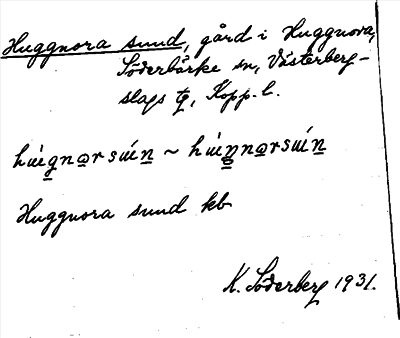 Huggnora sund, gård i Huggnora,
Söderbärke sn, Västerberg-
slags tg, Kopp. l.
Huggnora sund kb
K. Söderberg 1931.